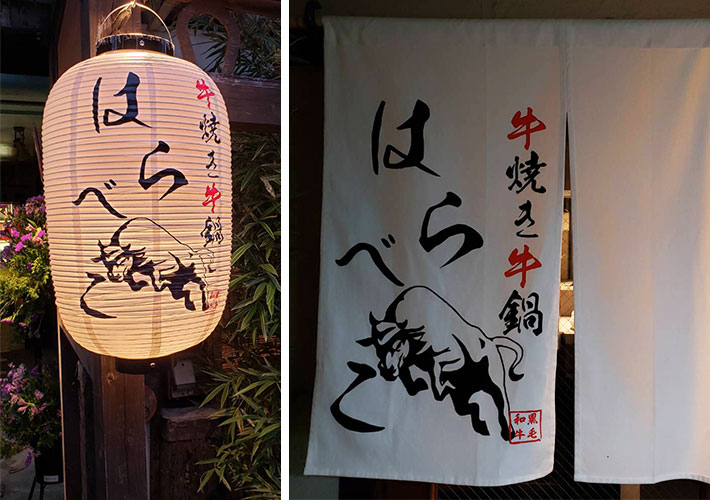 牛焼き牛鍋
はらぺこ
牛焼き牛鍋
はらぺこ
黒毛
和牛